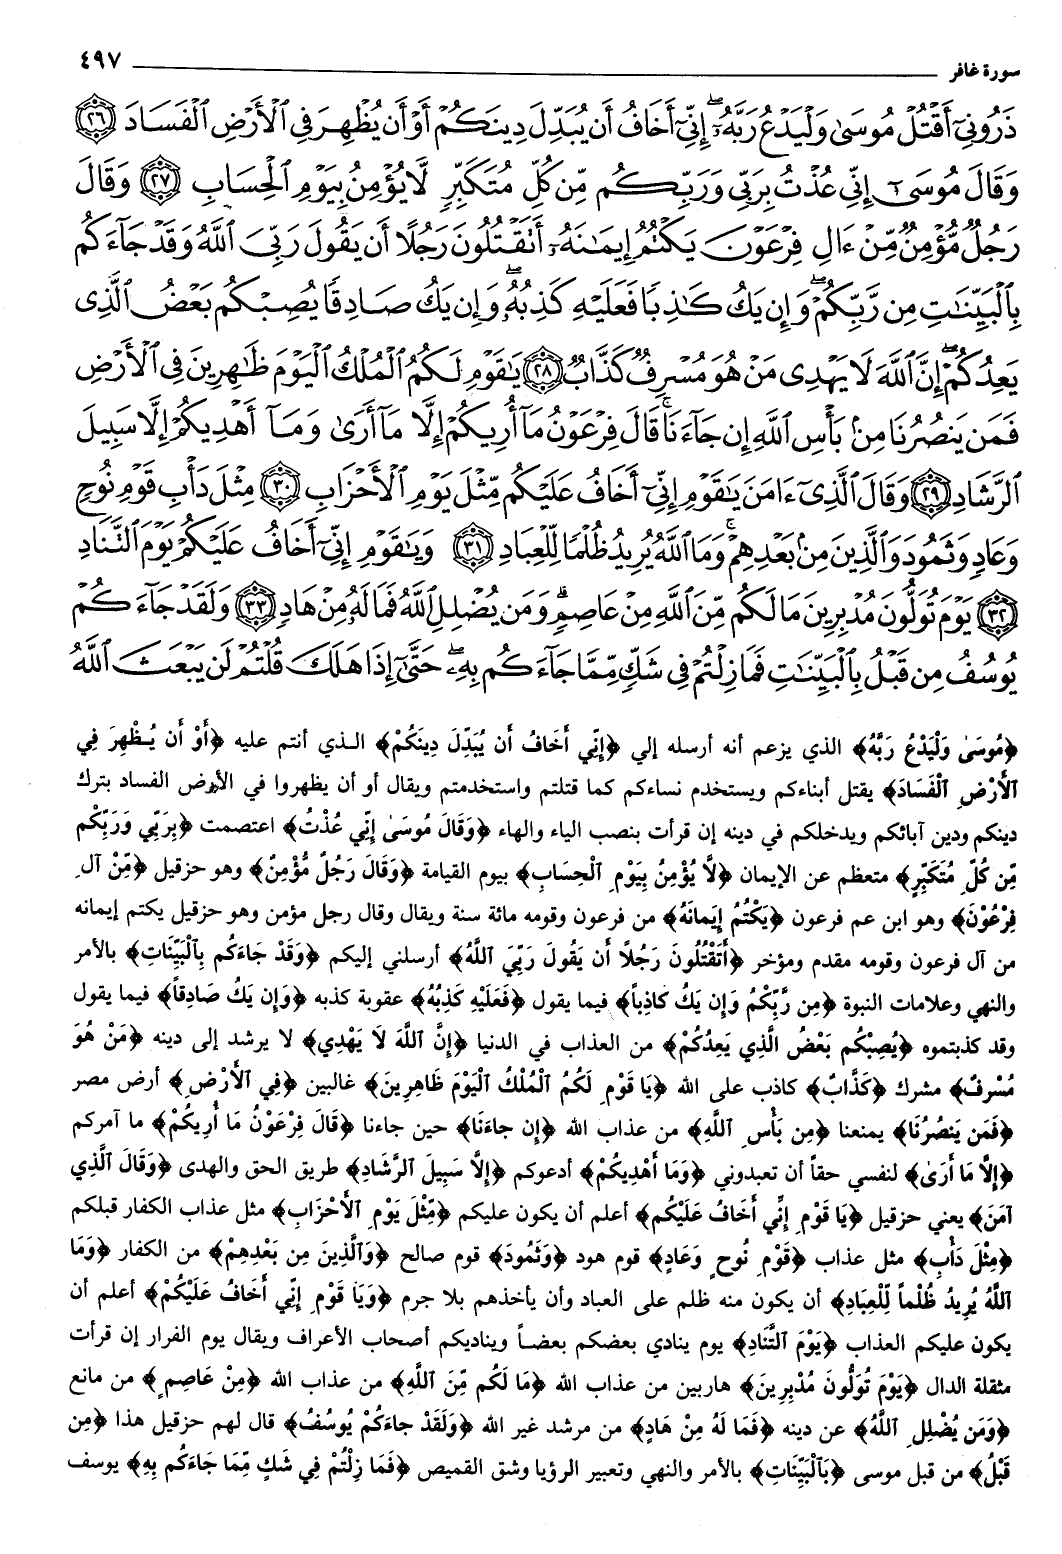 سورة غافر ٤٩٧
ذَرُونِىٓ أَقْتُلْ مُوسَىٰ وَلْيَدْعُ رَبَّهُۥٓ ۖ إِنِّىٓ أَخَافُ أَن يُبَدِّلَ دِينَكُمْ أَوْ أَن يُظْهِرَ فِى ٱلْأَرْضِ ٱلْفَسَادَ ٢٦
وَقَالَ مُوسَىٰٓ إِنِّى عُذْتُ بِرَبِّى وَرَبِّكُم مِّن كُلِّ مُتَكَبِّرٍ لَّا يُؤْمِنُ بِيَوْمِ ٱلْحِسَابِ ٢٧ وَقَالَ
رَجُلٌ مُّؤْمِنٌ مِّنْ ءَالِ فِرْعَوْنَ يَكْتُمُ إِيمَٰنَهُۥٓ أَتَقْتُلُونَ رَجُلًا أَن يَقُولَ رَبِّىَ ٱللَّهُ وَقَدْ جَآءَكُم
بِٱلْبَيِّنَٰتِ مِن رَّبِّكُمْ ۖ وَإِن يَكُ كَٰذِبًا فَعَلَيْهِ كَذِبُهُۥ ۖ وَإِن يَكُ صَادِقًا يُصِبْكُم بَعْضُ ٱلَّذِى
يَعِدُكُمْ ۖ إِنَّ ٱللَّهَ لَا يَهْدِى مَنْ هُوَ مُسْرِفٌ كَذَّابٌ ٢٨ يَٰقَوْمِ لَكُمُ ٱلْمُلْكُ ٱلْيَوْمَ ظَٰهِرِينَ فِى ٱلْأَرْضِ
فَمَن يَنصُرُنَا مِنۢ بَأْسِ ٱللَّهِ إِن جَآءَنَا ۚ قَالَ فِرْعَوْنُ مَآ أُرِيكُمْ إِلَّا مَآ أَرَىٰ وَمَآ أَهْدِيكُمْ إِلَّا سَبِيلَ
ٱلرَّشَادِ ٢٩ وَقَالَ ٱلَّذِىٓ ءَامَنَ يَٰقَوْمِ إِنِّىٓ أَخَافُ عَلَيْكُم مِّثْلَ يَوْمِ ٱلْأَحْزَابِ ٣٠ مِثْلَ دَأْبِ قَوْمِ نُوحٍ
وَعَادٍ وَثَمُودَ وَٱلَّذِينَ مِنۢ بَعْدِهِمْ ۚ وَمَا ٱللَّهُ يُرِيدُ ظُلْمًا لِّلْعِبَادِ ٣١ وَيَٰقَوْمِ إِنِّىٓ أَخَافُ عَلَيْكُمْ يَوْمَ ٱلتَّنَادِ
٣٢ يَوْمَ تُوَلُّونَ مُدْبِرِينَ مَا لَكُم مِّنَ ٱللَّهِ مِنْ عَاصِمٍ ۗ وَمَن يُضْلِلِ ٱللَّهُ فَمَا لَهُۥ مِنْ هَادٍ ٣٣ وَلَقَدْ جَآءَكُمْ
يُوسُفُ مِن قَبْلُ بِٱلْبَيِّنَٰتِ فَمَا زِلْتُمْ فِى شَكٍّ مِّمَّا جَآءَكُم بِهِۦ ۖ حَتَّىٰٓ إِذَا هَلَكَ قُلْتُمْ لَن يَبْعَثَ ٱللَّهُ
﴿مُوسَىٰ وَلْيَدْعُ رَبَّهُ﴾ الذي يزعم أنه أرسله إلي ﴿إِنِّي أَخَافُ أَن يُبَدِّلَ دِينَكُمْ﴾ الذي أنتم عليه ﴿أَوْ أَن يُظْهِرَ فِي
ٱلأَرْضِ ٱلْفَسَادَ﴾ يقتل أبناءكم ويستخدم نساءكم كما قتلتم واستخدمتم ويقال أو أن يظهروا في الأرض الفساد بترك
دينكم ودين آبائكم ويدخلكم في دينه إن قرأت بنصب الياء والهاء ﴿وَقَالَ مُوسَىٰ إِنِّي عُذْتُ﴾ اعتصمت ﴿بِرَبِّي وَرَبِّكُم
مِّن كُلِّ مُتَكَبِّرٍ﴾ متعظم عن الإيمان ﴿لَّا يُؤْمِنُ بِيَوْمِ ٱلْحِسَابِ﴾ بيوم القيامة ﴿وَقَالَ رَجُلٌ مُّؤْمِنٌ﴾ وهو حزقيل ﴿مِّنْ آلِ
فِرْعَوْنَ﴾ وهو ابن عم فرعون ﴿يَكْتُمُ إِيمَانَهُ﴾ من فرعون وقومه مائة سنة ويقال وقال رجل مؤمن وهو حزقيل يكتم إيمانه
من آل فرعون وقومه مقدم ومؤخر ﴿أَتَقْتُلُونَ رَجُلاً أَن يَقُولَ رَبِّيَ ٱللَّهُ﴾ أرسلني إليكم ﴿وَقَدْ جَاءَكُم بِٱلْبَيِّنَاتِ﴾ بالأمر
والنهي وعلامات النبوة ﴿مِن رَّبِّكُمْ وَإِن يَكُ كَاذِباً﴾ فيما يقول ﴿فَعَلَيْهِ كَذِبُهُ﴾ عقوبة كذبه ﴿وَإِن يَكُ صَادِقاً﴾ فيما يقول
وقد كذبتموه ﴿يُصِبْكُم بَعْضُ الَّذِي يَعِدُكُمْ﴾ من العذاب في الدنيا ﴿إِنَّ ٱللَّهَ لَا يَهْدِي﴾ لا يرشد إلى دينه ﴿مَنْ هُوَ
مُسْرِفٌ﴾ مشرك ﴿كَذَّابٌ﴾ كاذب على الله ﴿يَا قَوْمِ لَكُمُ ٱلْمُلْكُ ٱلْيَوْمَ ظَاهِرِينَ﴾ غالبين ﴿فِي ٱلأَرْضِ﴾ أرض مصر
﴿فَمَن يَنصُرُنَا﴾ يمنعنا ﴿مِن بَأْسِ ٱللَّهِ﴾ من عذاب الله ﴿إِن جاءَنَا﴾ حين جاءنا ﴿قَالَ فِرْعَوْنُ مَا أُرِيكُمْ﴾ ما آمركم
﴿إِلَّا مَا أَرَىٰ﴾ لنفسي حقاً أن تعبدوني ﴿وَمَا أَهْدِيكُمْ﴾ أدعوكم ﴿إِلَّا سَبِيلَ ٱلرَّشَادِ﴾ طريق الحق والهدى ﴿وَقَالَ ٱلَّذِي
آمَنَ﴾ يعني حزقيل ﴿يَا قَوْمِ إِنِّي أَخَافُ عَلَيْكُم﴾ أعلم أن يكون عليكم ﴿مِّثْلَ يَوْمِ ٱلأَحْزَابِ﴾ مثل عذاب الكفار قبلكم
﴿مِثْلَ دَأْبِ﴾ مثل عذاب ﴿قَوْمِ نُوحٍ وَعَادٍ﴾ قوم هود ﴿وَثَمُودَ﴾ قوم صالح ﴿وَٱلَّذِينَ مِن بَعْدِهِمْ﴾ من الكفار ﴿وَمَا
ٱللَّهُ يُرِيدُ ظُلْماً لِّلْعِبَادِ﴾ أن يكون منه ظلم على العباد وأن يأخذهم بلا جرم ﴿وَيَا قَوْمِ إِنِّي أَخَافُ عَلَيْكُمْ﴾ أعلم أن
يكون عليكم العذاب ﴿يَوْمَ ٱلتَّنَادِ﴾ يوم ينادي بعضكم بعضاً ويناديكم أصحاب الأعراف ويقال يوم الفرار إن قرأت
مثقلة الدال ﴿يَوْمَ تُوَلُّونَ مُدْبِرِينَ﴾ هاربين من عذاب الله ﴿مَا لَكُم مِّنَ ٱللَّهِ﴾ من عذاب الله ﴿مِنْ عَاصِمٍ﴾ من مانع
﴿وَمَن يُضْلِلِ ٱللَّهُ﴾ عن دينه ﴿فَمَا لَهُ مِنْ هَادٍ﴾ من مرشد غير الله ﴿وَلَقَدْ جاءَكُمْ يُوسُفُ﴾ قال لهم حزقيل هذا ﴿مِن
قَبْلُ﴾ من قبل موسى ﴿بَٱلْبَيِّنَاتِ﴾ بالأمر والنهي وتعبير الرؤيا وشق القميص ﴿فَمَا زِلْتُمْ فِي شَكٍ مِّمَّا جَاءَكُم بِهِ﴾ يوسف